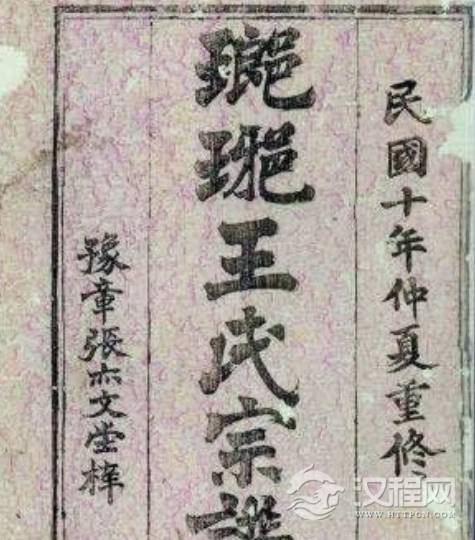 民國十年仲夏重修
瑯琊王氏宗譜
豫章張亦文堂梓
汉程网